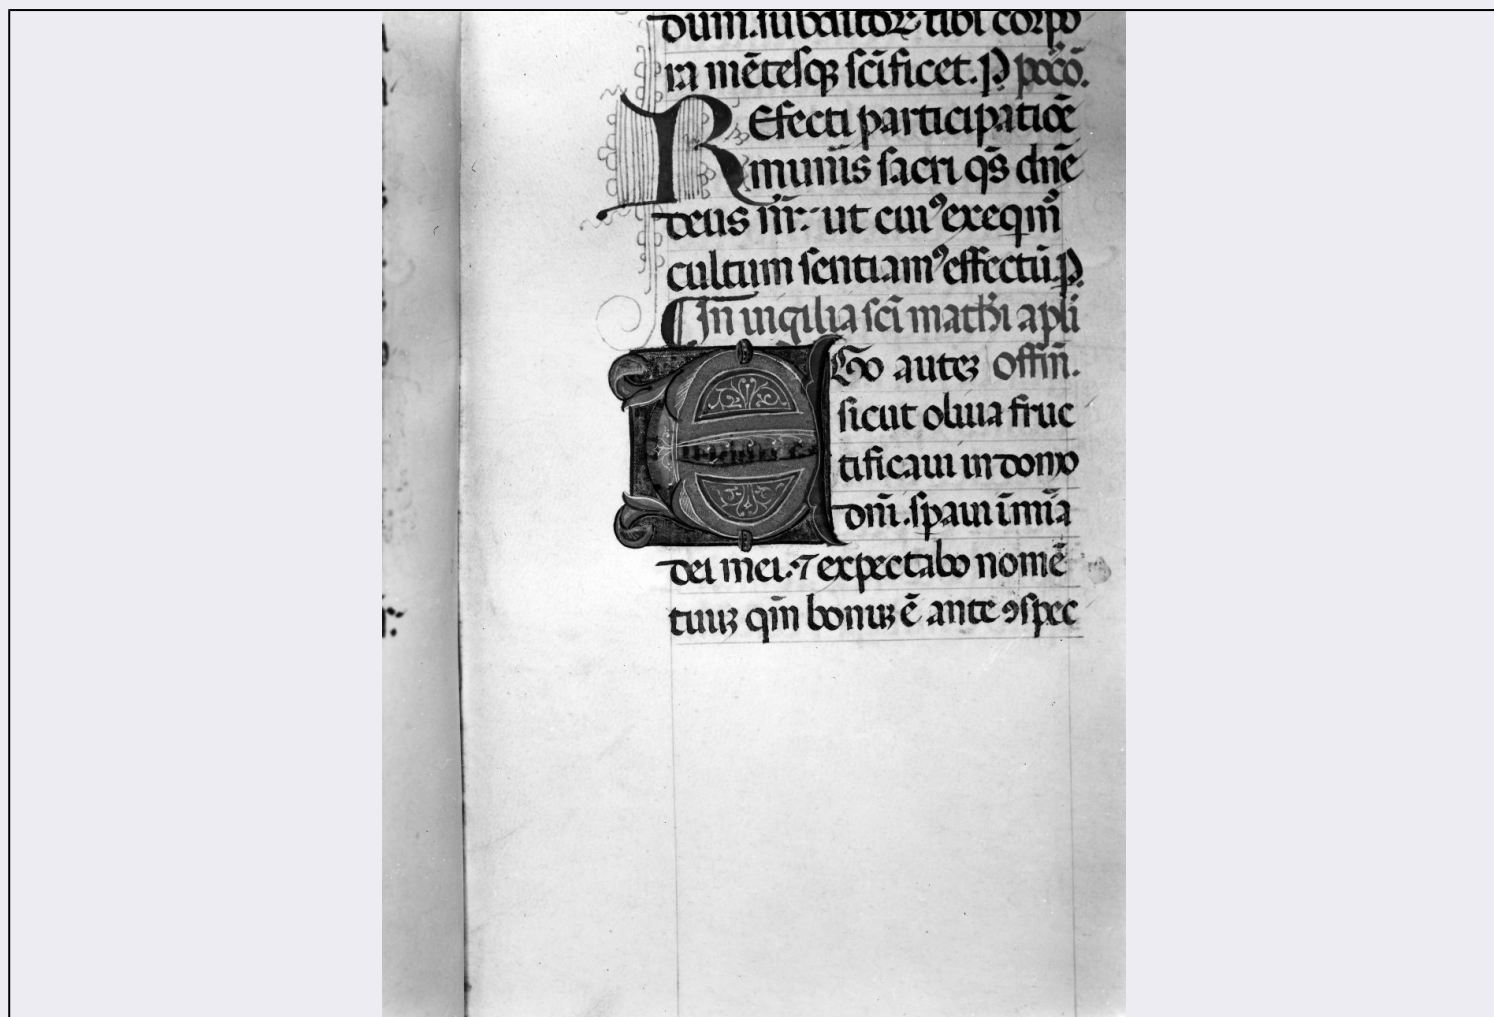 dum. subditoꝝ tibi corpo
ra mētesqꝫ scīficet. P̱ poꝯcō.
REfecti participatiōe
munīis sacri qs̄ dn̄e
deus nr̄: ut cuiꝰ exeqm̄
cultum sentiamꝰ effectū. P̱
In uigilia scī mathi apłi
EGo auteꝫ offm̄.
sicut oliua fruc
tificaui in domo
dom̄. spaui ī mīa
dei mei. ⁊ expectabo nomē
tuuꝫ qm̄ bonuꝫ ē ante ꝯspec